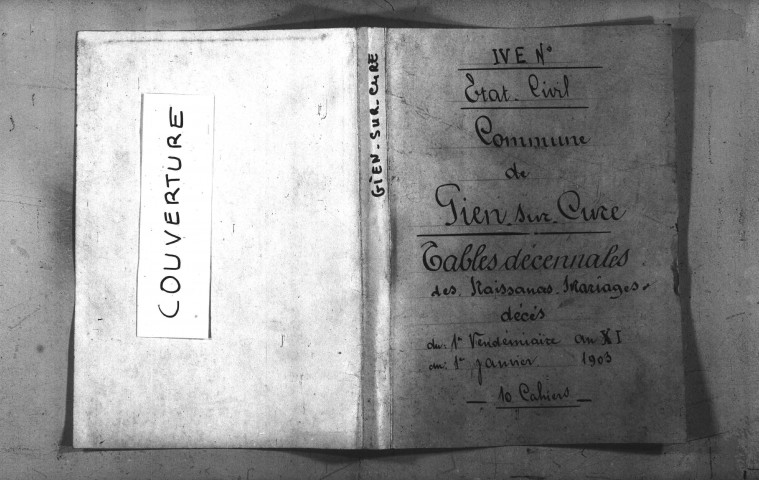 COUVERTURE
GIEN-SUR-CURE
IV E N°
Etat-Civil
Commune
de
Gien-sur-Cure
Tables décennales
des Naissances-Mariages-
décès
du: 1er Vendémiaire an XI
au: 1er janvier 1903
- 10 Cahiers -